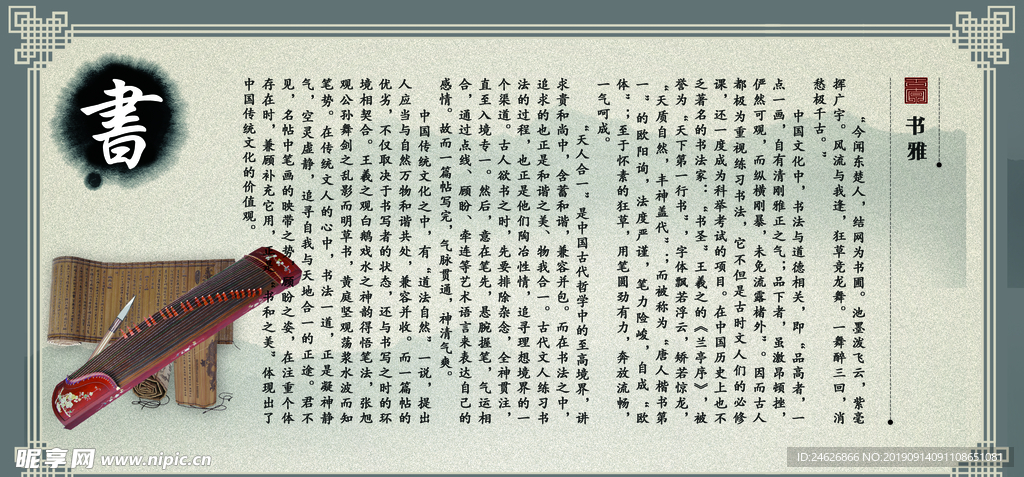 书雅
“今闻东楚人，结网为书圃。池墨泼飞云，紫毫
挥广宇。风流与我逢，狂草竞龙舞。一舞醉三回，消
愁极千古。”
中国文化中，书法与道德相关，即“品高者，一
点一画，自有清刚雅正之气；品下者，虽激昂顿挫，
俨然可观，而纵横刚暴，未免流露楮外”。因而古人
都极为重视练习书法，它不但是古时文人们的必修
课，还一度成为科举考试的项目。在中国历史上也不
乏著名的书法家：“书圣”王羲之的《兰亭序》，被
誉为“天下第一行书”，字体飘若浮云，矫若惊龙，
“天质自然，丰神盖代”；而被称为“唐人楷书第
一”的欧阳询，法度严谨，笔力险峻，自成“欧
体”；至于怀素的狂草，用笔圆劲有力，奔放流畅，
一气呵成。
“天人合一”是中国古代哲学中的至高境界，讲
求贵和尚中，含蓄和谐，兼容并包。而在书法之中，
追求的也正是和谐之美、物我合一。古代文人练习书
法的过程，也正是他们陶冶性情，追寻理想境界的一
个渠道。古人欲书之时，先要排除杂念，全神贯注，
直至入境专一。然后，意在笔先，悬腕握笔，气运相
合，通过点线、顾盼、牵连等艺术语言来表达自己的
感情。故而一篇帖写完，气脉贯通，神清气爽。
中国传统文化之中，有“道法自然”一说，提出
人应当与自然万物和谐共处，兼容并收。而一篇帖的
优劣，不仅取决于书写者的状态，还与书写之时的环
境相契合。王羲之观白鹅戏水之神韵得悟笔法，张旭
观公孙舞剑之乱影而明草书，黄庭坚观荡桨水波而知
笔势。在传统文人的心中，书法一道，正是凝神静
气，空灵虚静，追寻自我与天地合一的正途。君不
见，名帖中笔画的映带之势，顾盼之姿，在注重个体
存在时，兼顾补充它用，“书和之美”体现出了
中国传统文化的价值观。
書
昵享网 www.nipic.cn
ID:24626866 NO:20190914091108651081